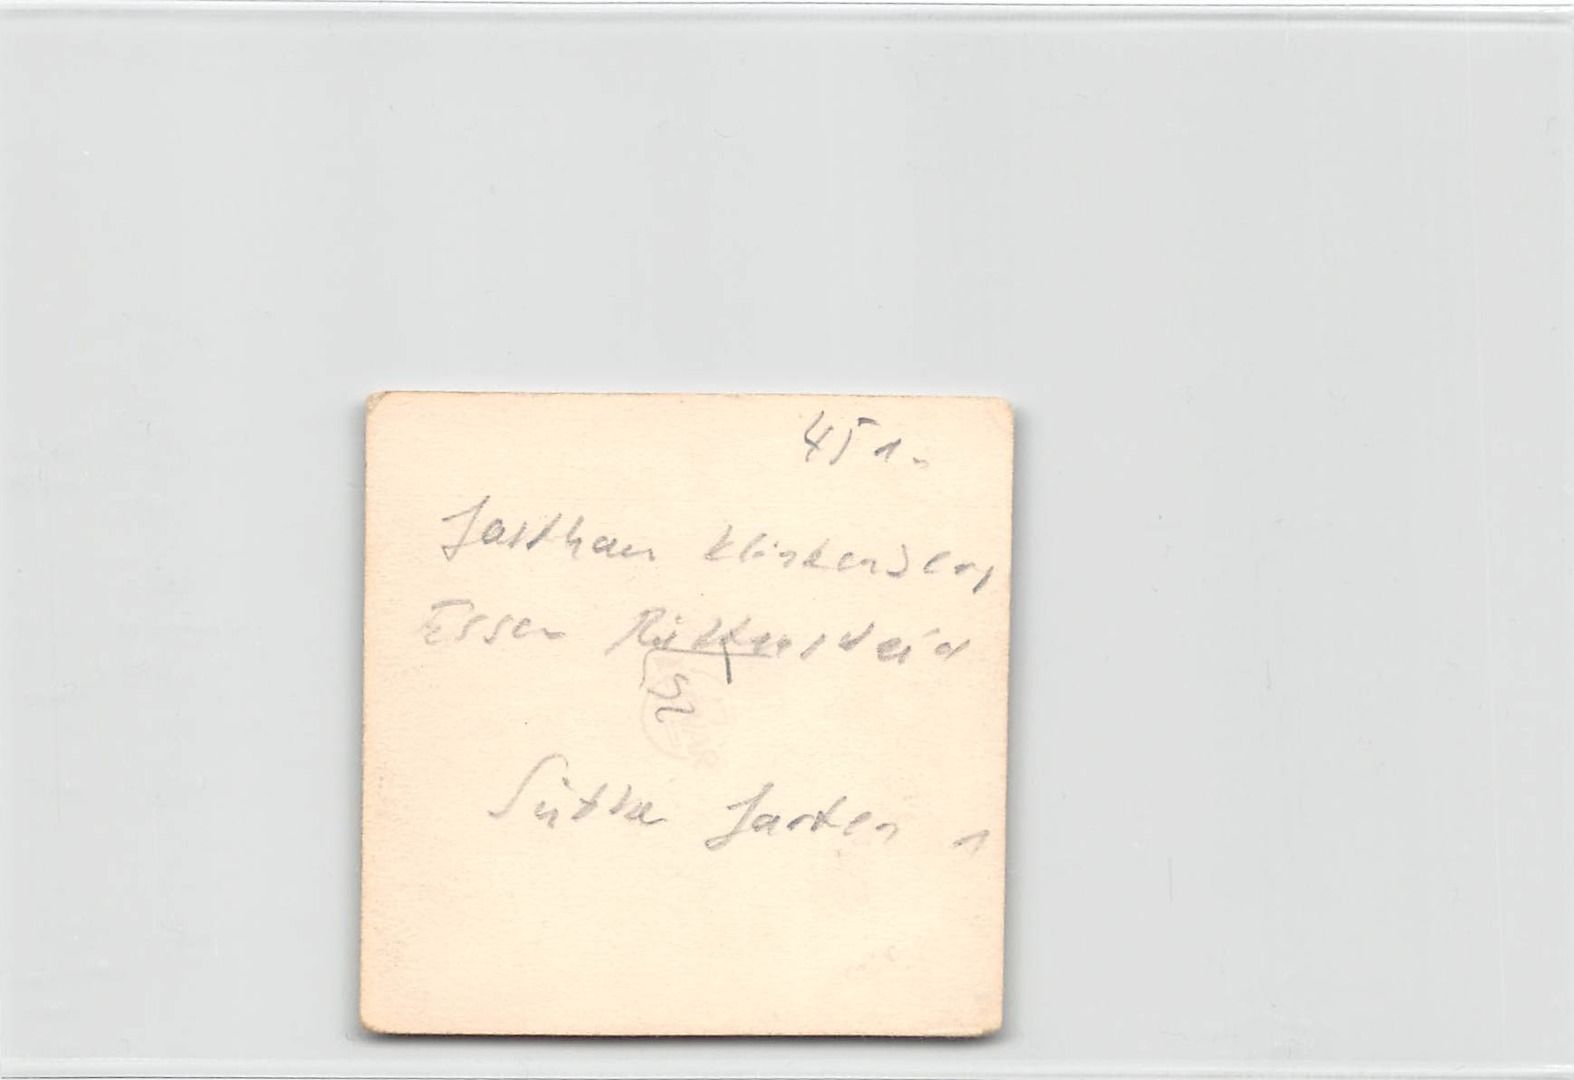 451.
Gasthaus Klinkenberg
Essen Rüttenscheid
52
Garten 1